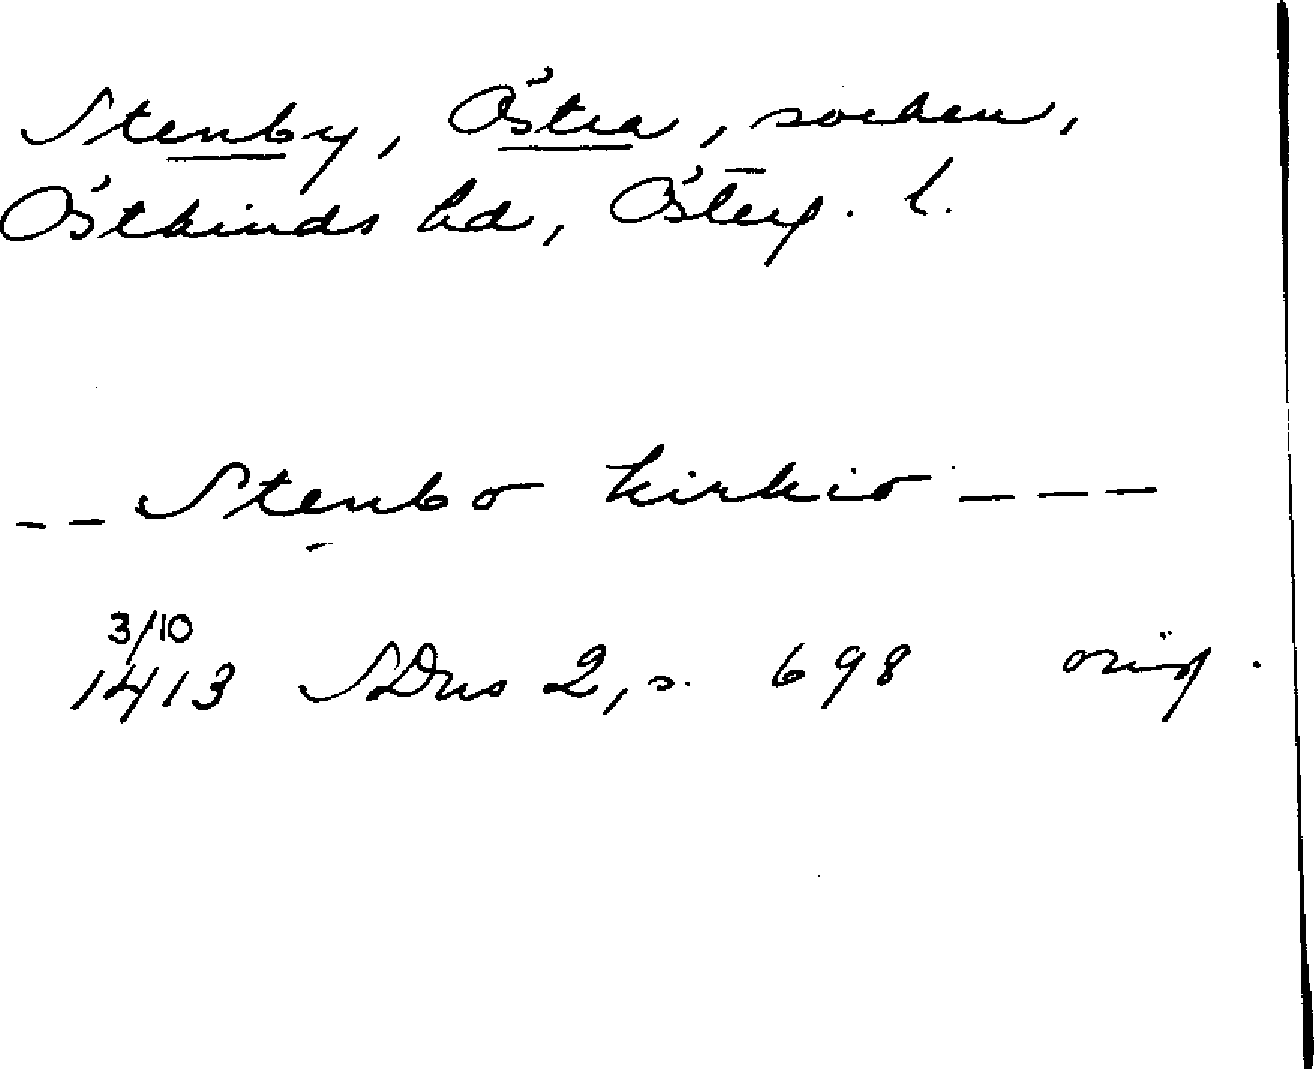 Stenby, Östra, socken,
Östkinds hd, Österg. l.
-- Stenbo kirkio ---
3/10
1413 SDns 2, s. 698 orig.